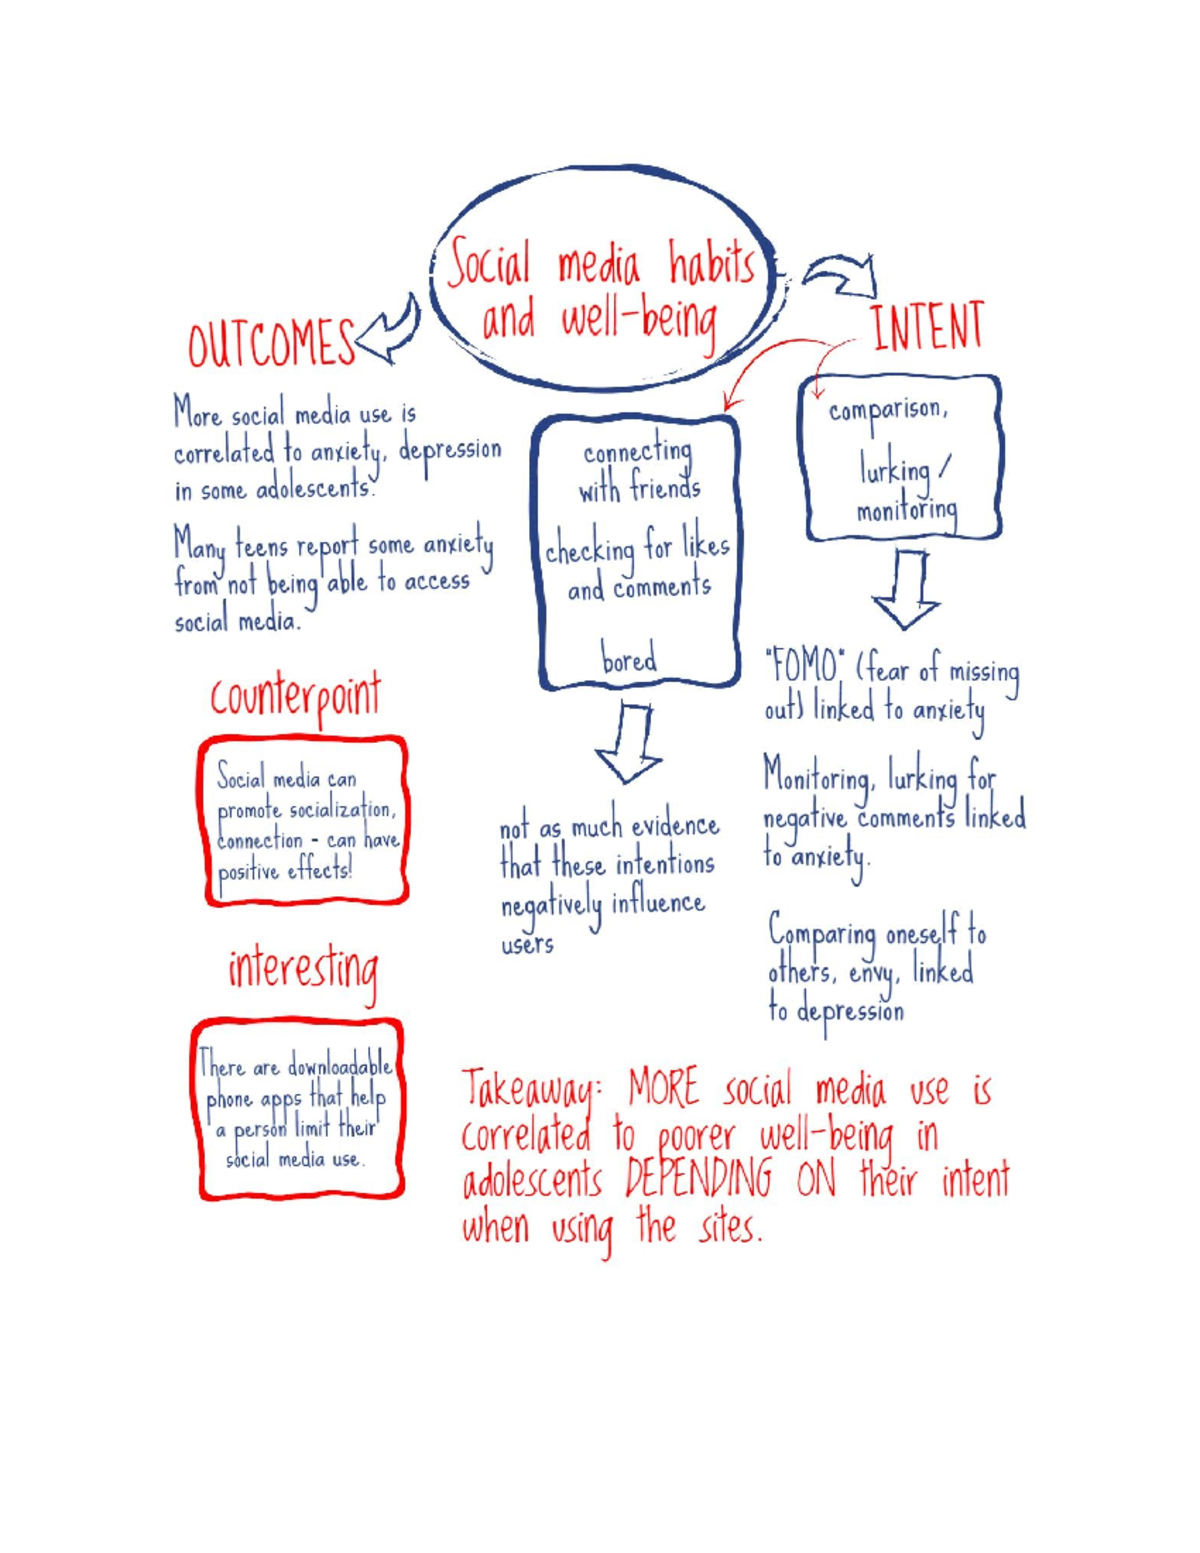 Social media habits
and well-being
OUTCOMES
More social media use is
correlated to anxiety, depression
in some adolescents.
Many teens report some anxiety
from not being able to access
social media.
counterpoint
Social media can
promote socialization,
connection - can have
positive effects!
interesting
There are downloadable
phone apps that help
a person limit their
social media use.
INTENT
connecting
with friends
checking for likes
and comments
bored
not as much evidence
that these intentions
negatively influence
users
comparison,
lurking /
monitoring
"FOMO" (fear of missing
out) linked to anxiety
Monitoring, lurking for
negative comments linked
to anxiety.
Comparing oneself to
others, envy, linked
to depression
Takeaway: MORE social media use is
correlated to poorer well-being in
adolescents DEPENDING ON their intent
when using the sites.